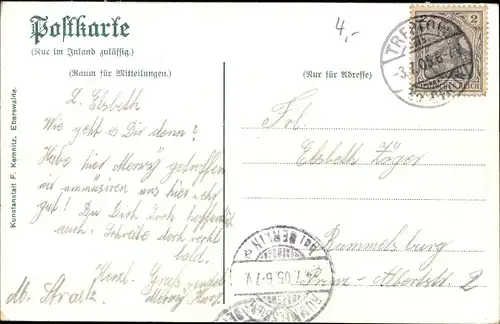 Postkarte
(Nur im Inland zulässig.)
(Raum für Mitteilungen.)
(Nur für Adresse)
4,-
2
TREPTOW
-3.
05.6-7
REICH
L. Elsbeth
Wie geht es Dir denn?
Habe hier getroffen
amüsiren uns hier sehr
gut! Du Dich doch hoffentlich
auch. Schreibe doch recht
bald.
Herzl. Gruß sendet
Frl.
Elsbeth Jäger
Rummelsburg
Prinz-Albertstr 2
bei BERLIN
05.6-7V.
Kunstanstalt F. Kemnitz, Eberswalde.